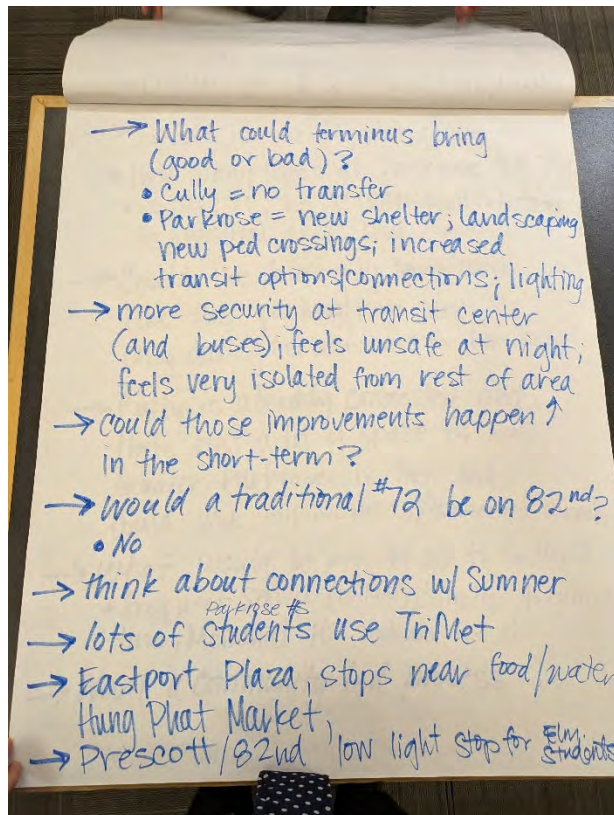 → What could terminus bring
(good or bad)?
• Cully = no transfer
• Parkrose = new shelter; landscaping
new ped crossings; increased
transit options/connections; lighting
→ more security at transit center
(and buses); feels unsafe at night;
feels very isolated from rest of area
→ could those improvements happen ↑
in the short-term?
→ would a traditional #72 be on 82nd?
• No
→ think about connections w/ Sumner
Parkrose HS
→ lots of students use TriMet
→ Eastport Plaza, stops near food/water
Hung Phat Market,
→ Prescott/82nd low light stop for Elm. students